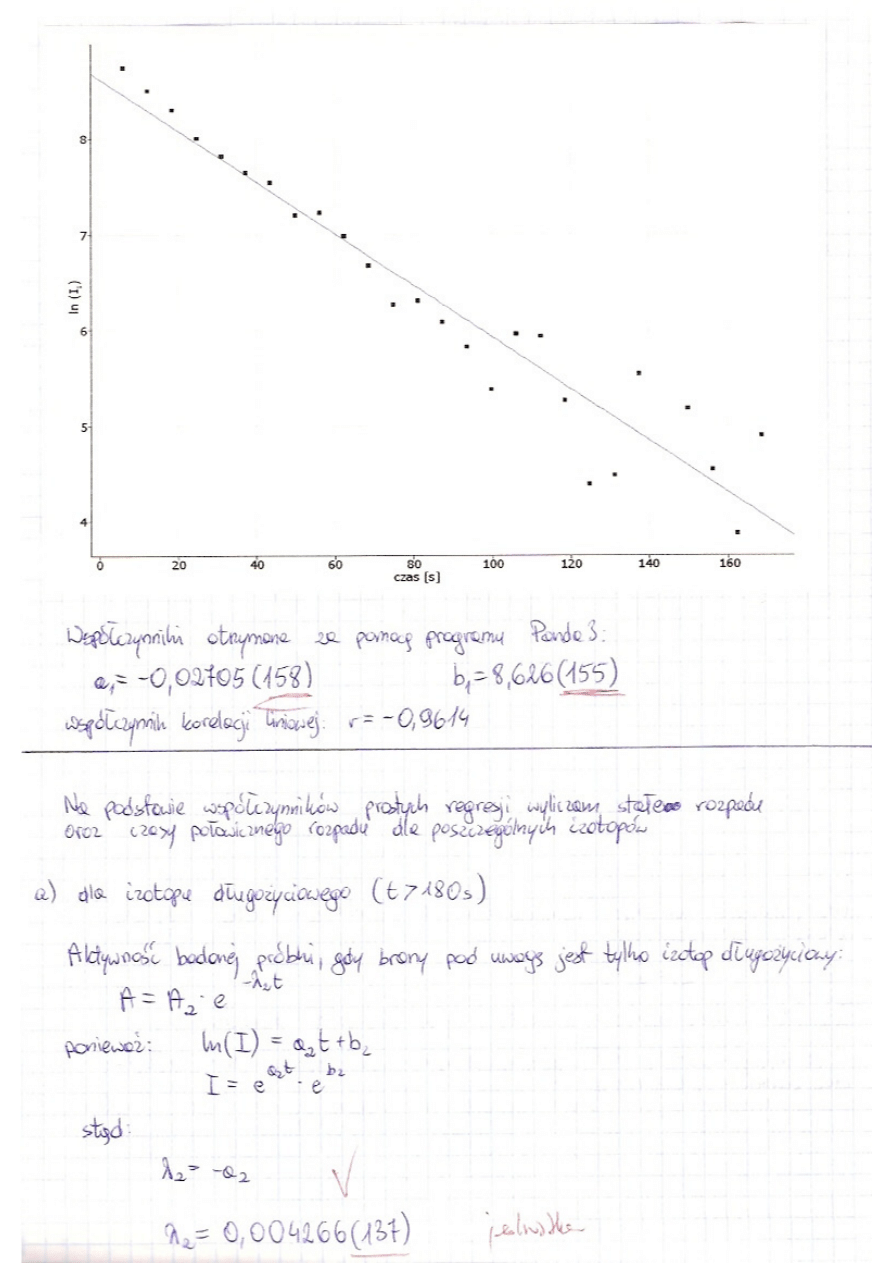 8
7
6
5
4
ln (Iᵢ)
0 20 40 60 80 100 120 140 160
czas [s]
Współczynniki otrzymane za pomocą programu Panda 3:
a₁ = -0,02705(158) b₁ = 8,626(155)
współczynnik korelacji liniowej: r = -0,9614
Na podstawie współczynników prostych regresji wyliczam stałe rozpadu
oraz czasy połowicznego rozpadu dla poszczególnych izotopów
a) dla izotopu długożyciowego (t > 180s)
Aktywność badanej próbki, gdy brany pod uwagę jest tylko izotop długożyciowy:
A = A₂ · e^(-λ₂t)
ponieważ: ln(I) = a₂t + b₂
I = e^(a₂t) · e^(b₂)
stąd:
λ₂ = -a₂
λ₂ = 0,004266(137) jednostka